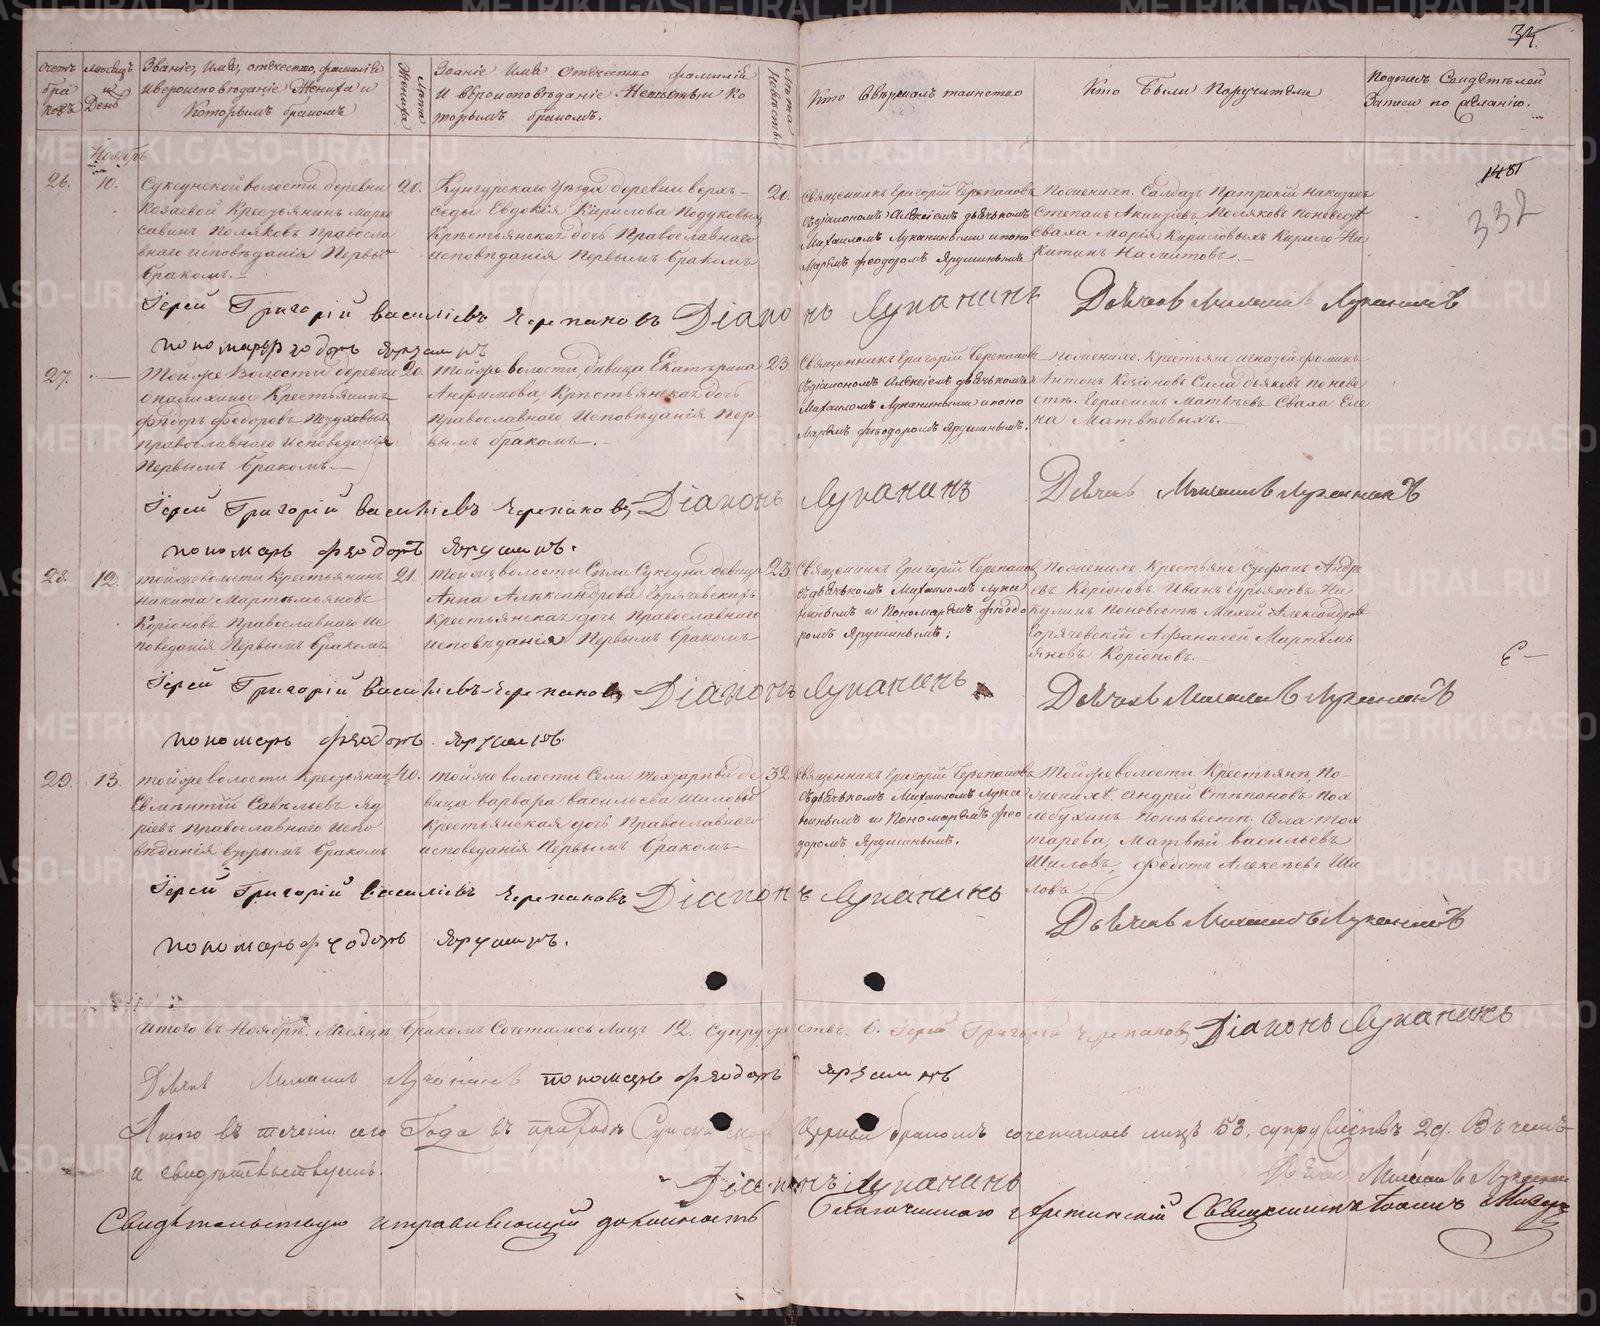 34.
Счетъ браковъ
Мѣсяцъ и День
Званіе, Имя, отечество, фамилія
и вѣроисповѣданіе Жениха и
Которымъ бракомъ
Лѣта Жениха
Званіе Имя Отечество фамилія
И вѣроисповѣданіе Невѣсты и Ко
торымъ бракомъ.
Лѣта Невѣсты
Кто Совершалъ таинство
Кто Были Поручители
Подпись Свидѣтелей
Записи по желанію.
Ноябрь
26.
10.
деревни
Козаевой Крестьянинъ Марко
Поляковъ Правосла
внаго исповѣданія Первы
бракомъ.
20.
Кунгурскаго Уѣзда деревни
Евдокія Кирилова
Крестьянская дочь Православнаго
исповѣданія Первымъ бракомъ
20.
Священникъ Григорій Черепановъ
Съ діакономъ Алексіемъ дьячькомъ
Михаиломъ Луканинымъ и поно
маремъ феодоромъ Ярушинымъ
По женихѣ. Салдатъ
Степанъ Поляковъ по невѣстѣ
Сваха Марія Кириловыхъ Кирило Ни
китинъ
1481
332
Іерей Григорій василіевъ Черепановъ Діаконъ Луканинъ
Дьячекъ Михаилъ Луканинъ
пономарь феодоръ Ярушинъ
27.
Той же Волости деревни
Крестьянинъ
Фёдоръ Федоровъ
Православнаго Исповеданія
Первымъ бракомъ.
20.
Той же волости, дѣвица Екатерина
Анфимова, Крестьянская дочь
Православнаго Исповѣданія Пер
вымъ бракомъ.
23.
Священникъ Григорій Черепановъ
Съ діакономъ Алексіемъ дьячькомъ
Михаиломъ Луканинымъ и поно
маремъ феодоромъ Ярушинымъ.
По женихе. Крестьяне
Антонъ по неве
стѣ. Герасимъ Матвѣевъ Сваха Еле
на Матвѣевыхъ.
Іерей Григорій василіевъ Черепановъ Діаконъ Луканинъ
Дьячекъ Михаилъ Луканинъ
пономарь феодоръ Ярушинъ.
28.
12.
той же волости Крестьянинъ
Никита Мартемьяновъ
Коріоновъ Православнаго Ис
поведанія Первымъ бракомъ
21.
Той же волости Села девица
Анна Александрова
Крестьянская дочь Православнаго
исповѣданія Первымъ бракомъ
23
Священникъ Григорій Черепановъ
Съ дьячькомъ Михаиломъ Лука
нинымъ и Пономаремъ феодо
ромъ Ярушинымъ;
По женихе. Крестьяне Андре
евъ Коріоновъ. Иванъ Ни
кулинъ По невестѣ Александров
Афанасей Мартемь
яновъ Коріоновъ.
Іерей Григорій Василіевъ Черепановъ Діаконъ Луканинъ
Дьячекъ Михаилъ Луканинъ
пономарь феодоръ Ярушинъ.
29.
13.
той же волости Крестьянинъ
Савельевъ
Православнаго Испо
вѣданія вторымъ бракомъ
40.
той же волости Села де
вица варвара васильева Шиловы
крестьянская дочь Православнаго
исповеданія Первымъ бракомъ
32.
Священникъ Григорій Черепановъ
Съ дьячькомъ Михаиломъ Лука
нинымъ и Пономаремъ фео
доромъ Ярушинымъ.
Той же волости Крестьяне По
женихѣ. Андрей Степановъ
По невестѣ. Села
Матвѣй васильевъ
Шиловъ, федотъ Алексѣевъ Ши
ловъ.
Іерей Григорій Василіевъ Черепановъ Діаконъ Луканинъ
Дьячекъ Михаилъ Луканинъ
пономарь феодоръ Ярушинъ.
Итого въ Ноябрѣ Месяцѣ Бракомъ Сочеталось Лицъ 12. супружествъ. 6. Іерей Григорій Черепановъ Діаконъ Луканинъ
Дьячекъ Михаилъ Луканинъ пономарь феодоръ Ярушинъ
Итого въ теченіи сего Года въ приходѣ Церкви бракомъ сочеталось лицъ 58. супружествъ 29. Въ чемъ
и свидѣтельствуемъ.
Діаконъ Луканинъ
Дьячекъ Михаилъ Луканинъ
Свидѣтельствую исправляющій должность Благочиннаго Артинскій Священникъ Іоаннъ
METRIKI.GASO-URAL.RU